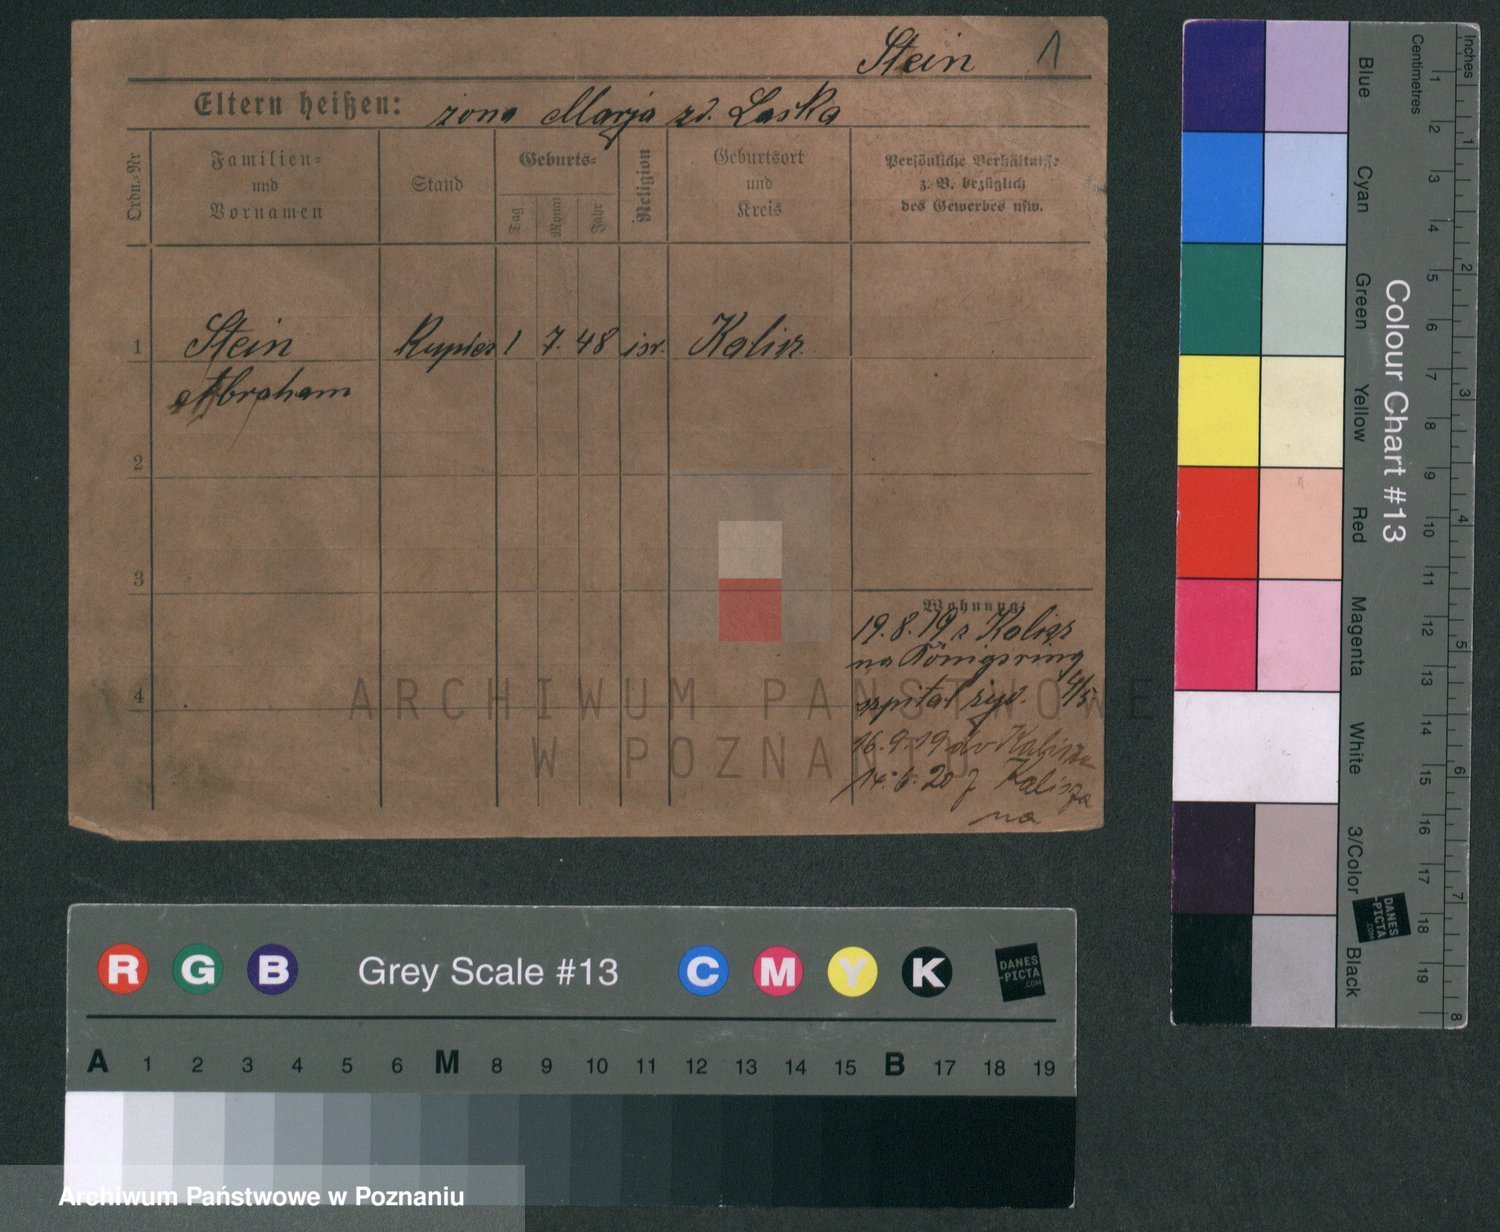 Stein 1
Eltern heißen: żona Marja zd. Laska
Ordn.-Nr
Familien-
und
Vornamen
Stand
Geburts-
Tag
Monat
Jahr
Religion
Geburtsort
und
Kreis
Persönliche Verhältnisse
z. B. bezüglich
des Gewerbes usw.
1 Stein Kupiec 1 7. 48 isr. Kalisz
Abraham
2
3
4
Wohnung:
19.8.19 z Kalisz
na Königsring
szpital żyd. 4/5
16.9.19 do Kalisza
14.6.20 z Kalisza
na
ARCHIWUM PAŃSTWOWE
W POZNANIU
Colour Chart #13
Blue
Cyan
Green
Yellow
Red
Magenta
White
3/Color
Black
Centimetres
1 2 3 4 5 6 7 8 9 10 11 12 13 14 15 16 17 18 19
Inches
1 2 3 4 5 6 7 8
DANES
-PICTA
.COM
R G B Grey Scale #13 C M Y K
DANES
-PICTA
.COM
A 1 2 3 4 5 6 M 8 9 10 11 12 13 14 15 B 17 18 19
Archiwum Państwowe w Poznaniu